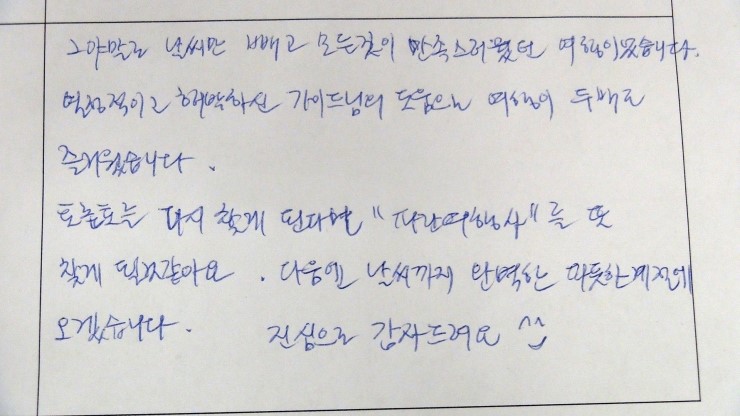 그야말로 날씨만 빼고 모든것이 만족스러웠던 여행이었습니다.
열정적이고 해박하신 가이드님의 도움으로 여행이 두배로
즐거웠습니다.
토론토를 다시 찾게 된다면 "파란여행사"를 또
찾게 될것같아요. 다음엔 날씨까지 완벽한 따뜻한계절에
오겠습니다. 진심으로 감사드려요 ^^